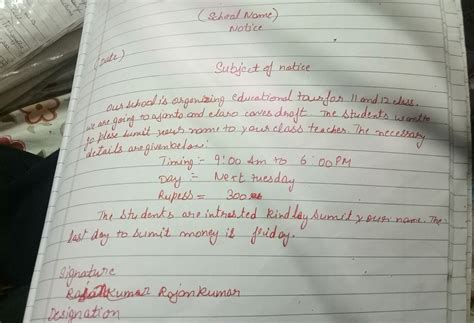 (School Name)
Notice
(Date)
Subject of notice
Our school is organizing educational tour for 11 and 12 class.
we are going to ajanta and elara caves draft. The students want to
go plese sumit your name to your class teacher. The necessary
details are given below:
Timing :- 9:00 Am to 6:00 PM
Day :- Next tuesday
Rupess = 300
The students are intrested kindley sumit your name. The
last day to sumit money is friday.
Signature
Rajan Kumar Rajan Kumar
Designation